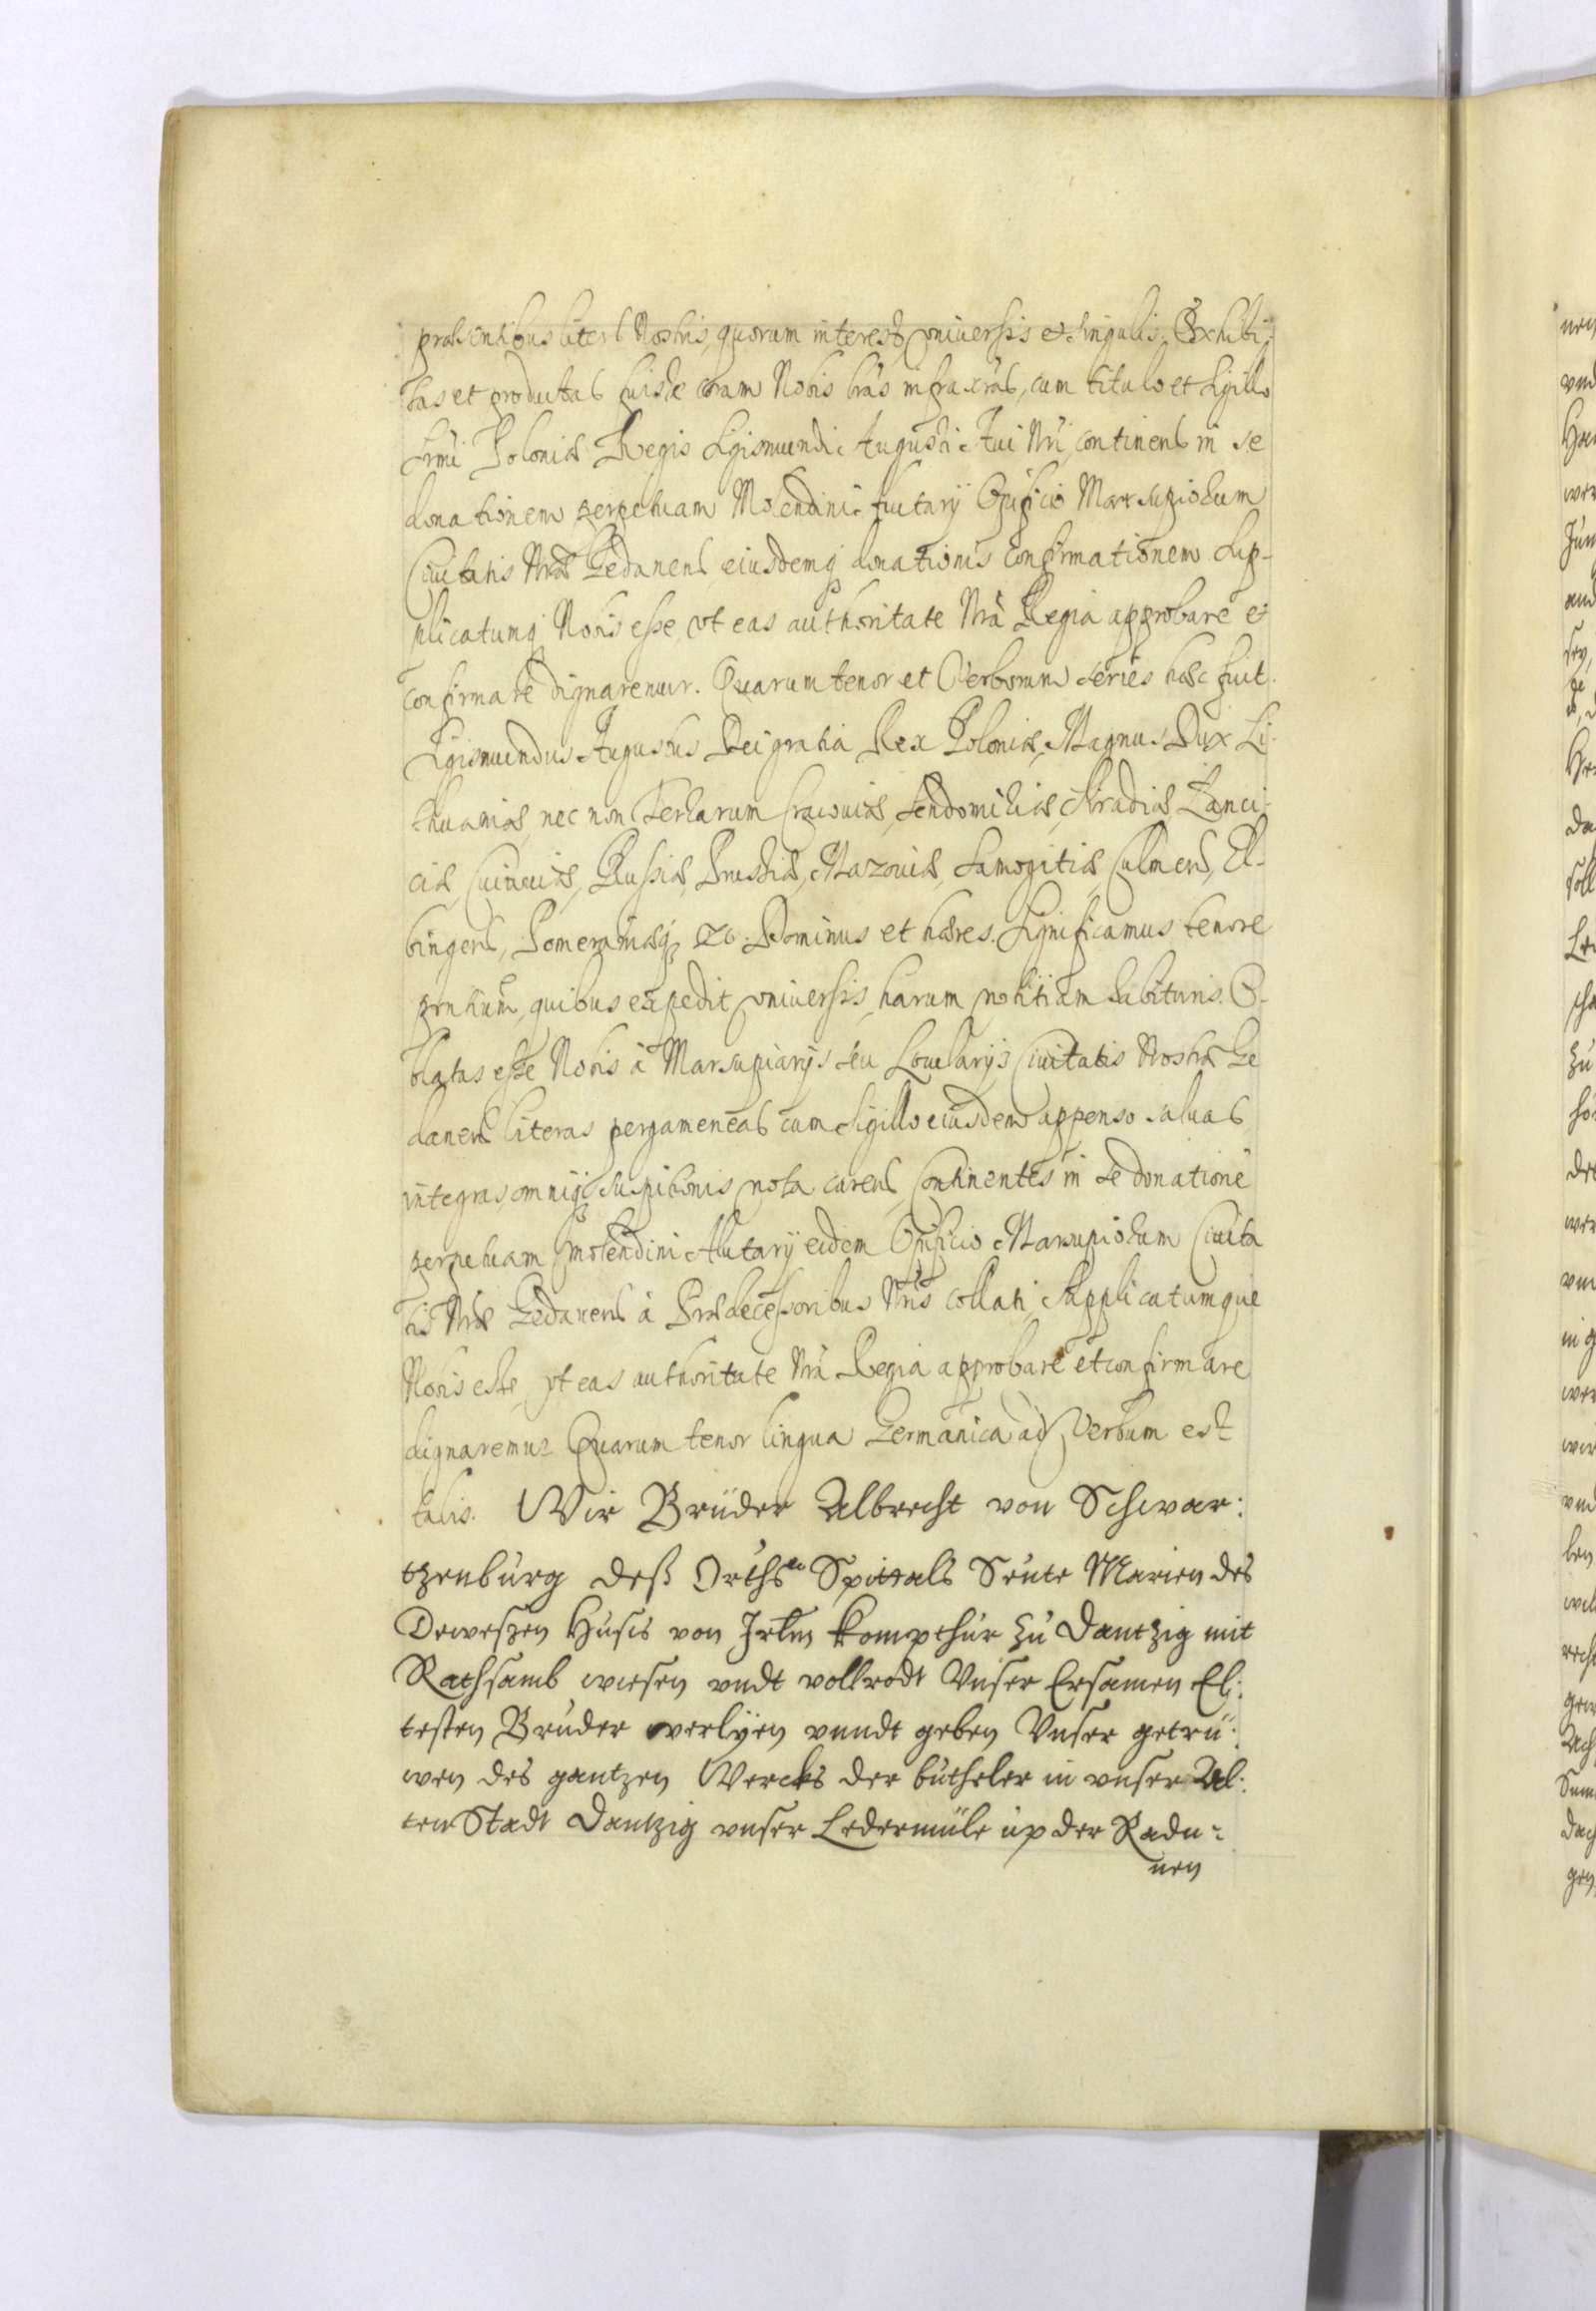 præsentibus literis Nostris, quorum interest, vniuersis et singulis. Exhibi-
tas et productas fuisse coram Nobis lras infrascras, cum titulo et Sigillo
Srmi Poloniæ Regis Sigismundi Augusti Aui Nri, continens in se
donationem perpetuam Molendini Alutarij Opificio Marsupiorum
Ciuitatis Nræ Gedanens eiusdemq donationis confirmationem Sup-
plicatumq Nobis esse, vt eas authoritate Nrâ Regia approbare et
confirmare dignaremur. Quarum tenor et Verborum series hæc fuit.
Sigismundus Augustus Dei gratia Rex Poloniæ, Magnus Dux Li-
thuaniæ, nec non Terrarum Cracouiæ, Sendomiriæ, Siradiæ Lanci-
ciæ, Cuiauiæ, Russiæ, Prussiæ, Mazouiæ, Samogitiæ, Culmens, El-
bingens, Pomeraniæq, &c. Dominus et hæres. Significamus tenore
prntium, quibus expedit, vniuersis, harum notitiam habituris. O-
blatas esse Nobis à Marsupiarijs seu Lorarijs Ciuitatis Nostræ Ge
danens literas pergameneas cum Sigillo eiusdem appenso saluas
integras, omniq suspitionis nota carens, Continentes in se donatione
perpetuam molendini Alutarij eidem Opificio Marsupiorum Ciuita
tis Nræ Gedanens à Prædecessoribus Nris collati, Supplicatumque
Nobis esse, vt eas authoritate Nrâ Regia approbare et confirmare
dignaremur Quarum tenor lingua Germanica ad Verbum est
talis. Wir Brüder Albrecht von Schwar:
tzenburg deß Orths Spittals Sente Marien des
Deweszen Huses von Jrlm Kompthur zu Dantzig mit
Rathsamb wiesen vndt vollrodt Vnser Ersamen El:
testen Bruder verlyen vnndt geben Vnser getru:
wen des gantzen Wercks der butheler in vnser Al:
ten Stadt Dantzig vnser Ledermüle up der Radu-
nen